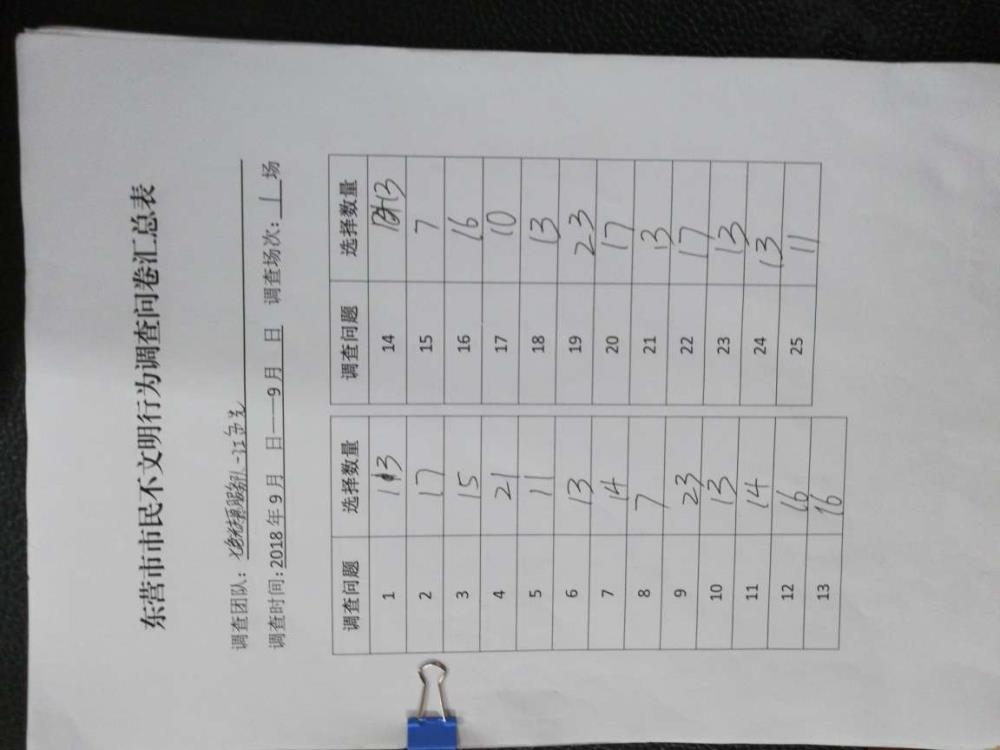 东营市市民不文明行为调查问卷汇总表
调查团队：
调查时间：2018年9月 日——9月 日 调查场次：1场
调查问题 选择数量 调查问题 选择数量
1 13 14 13
2 17 15 7
3 15 16 16
4 21 17 10
5 11 18 13
6 13 19 23
7 14 20 17
8 7 21 13
9 23 22 17
10 13 23 13
11 14 24 13
12 16 25 11
13 16